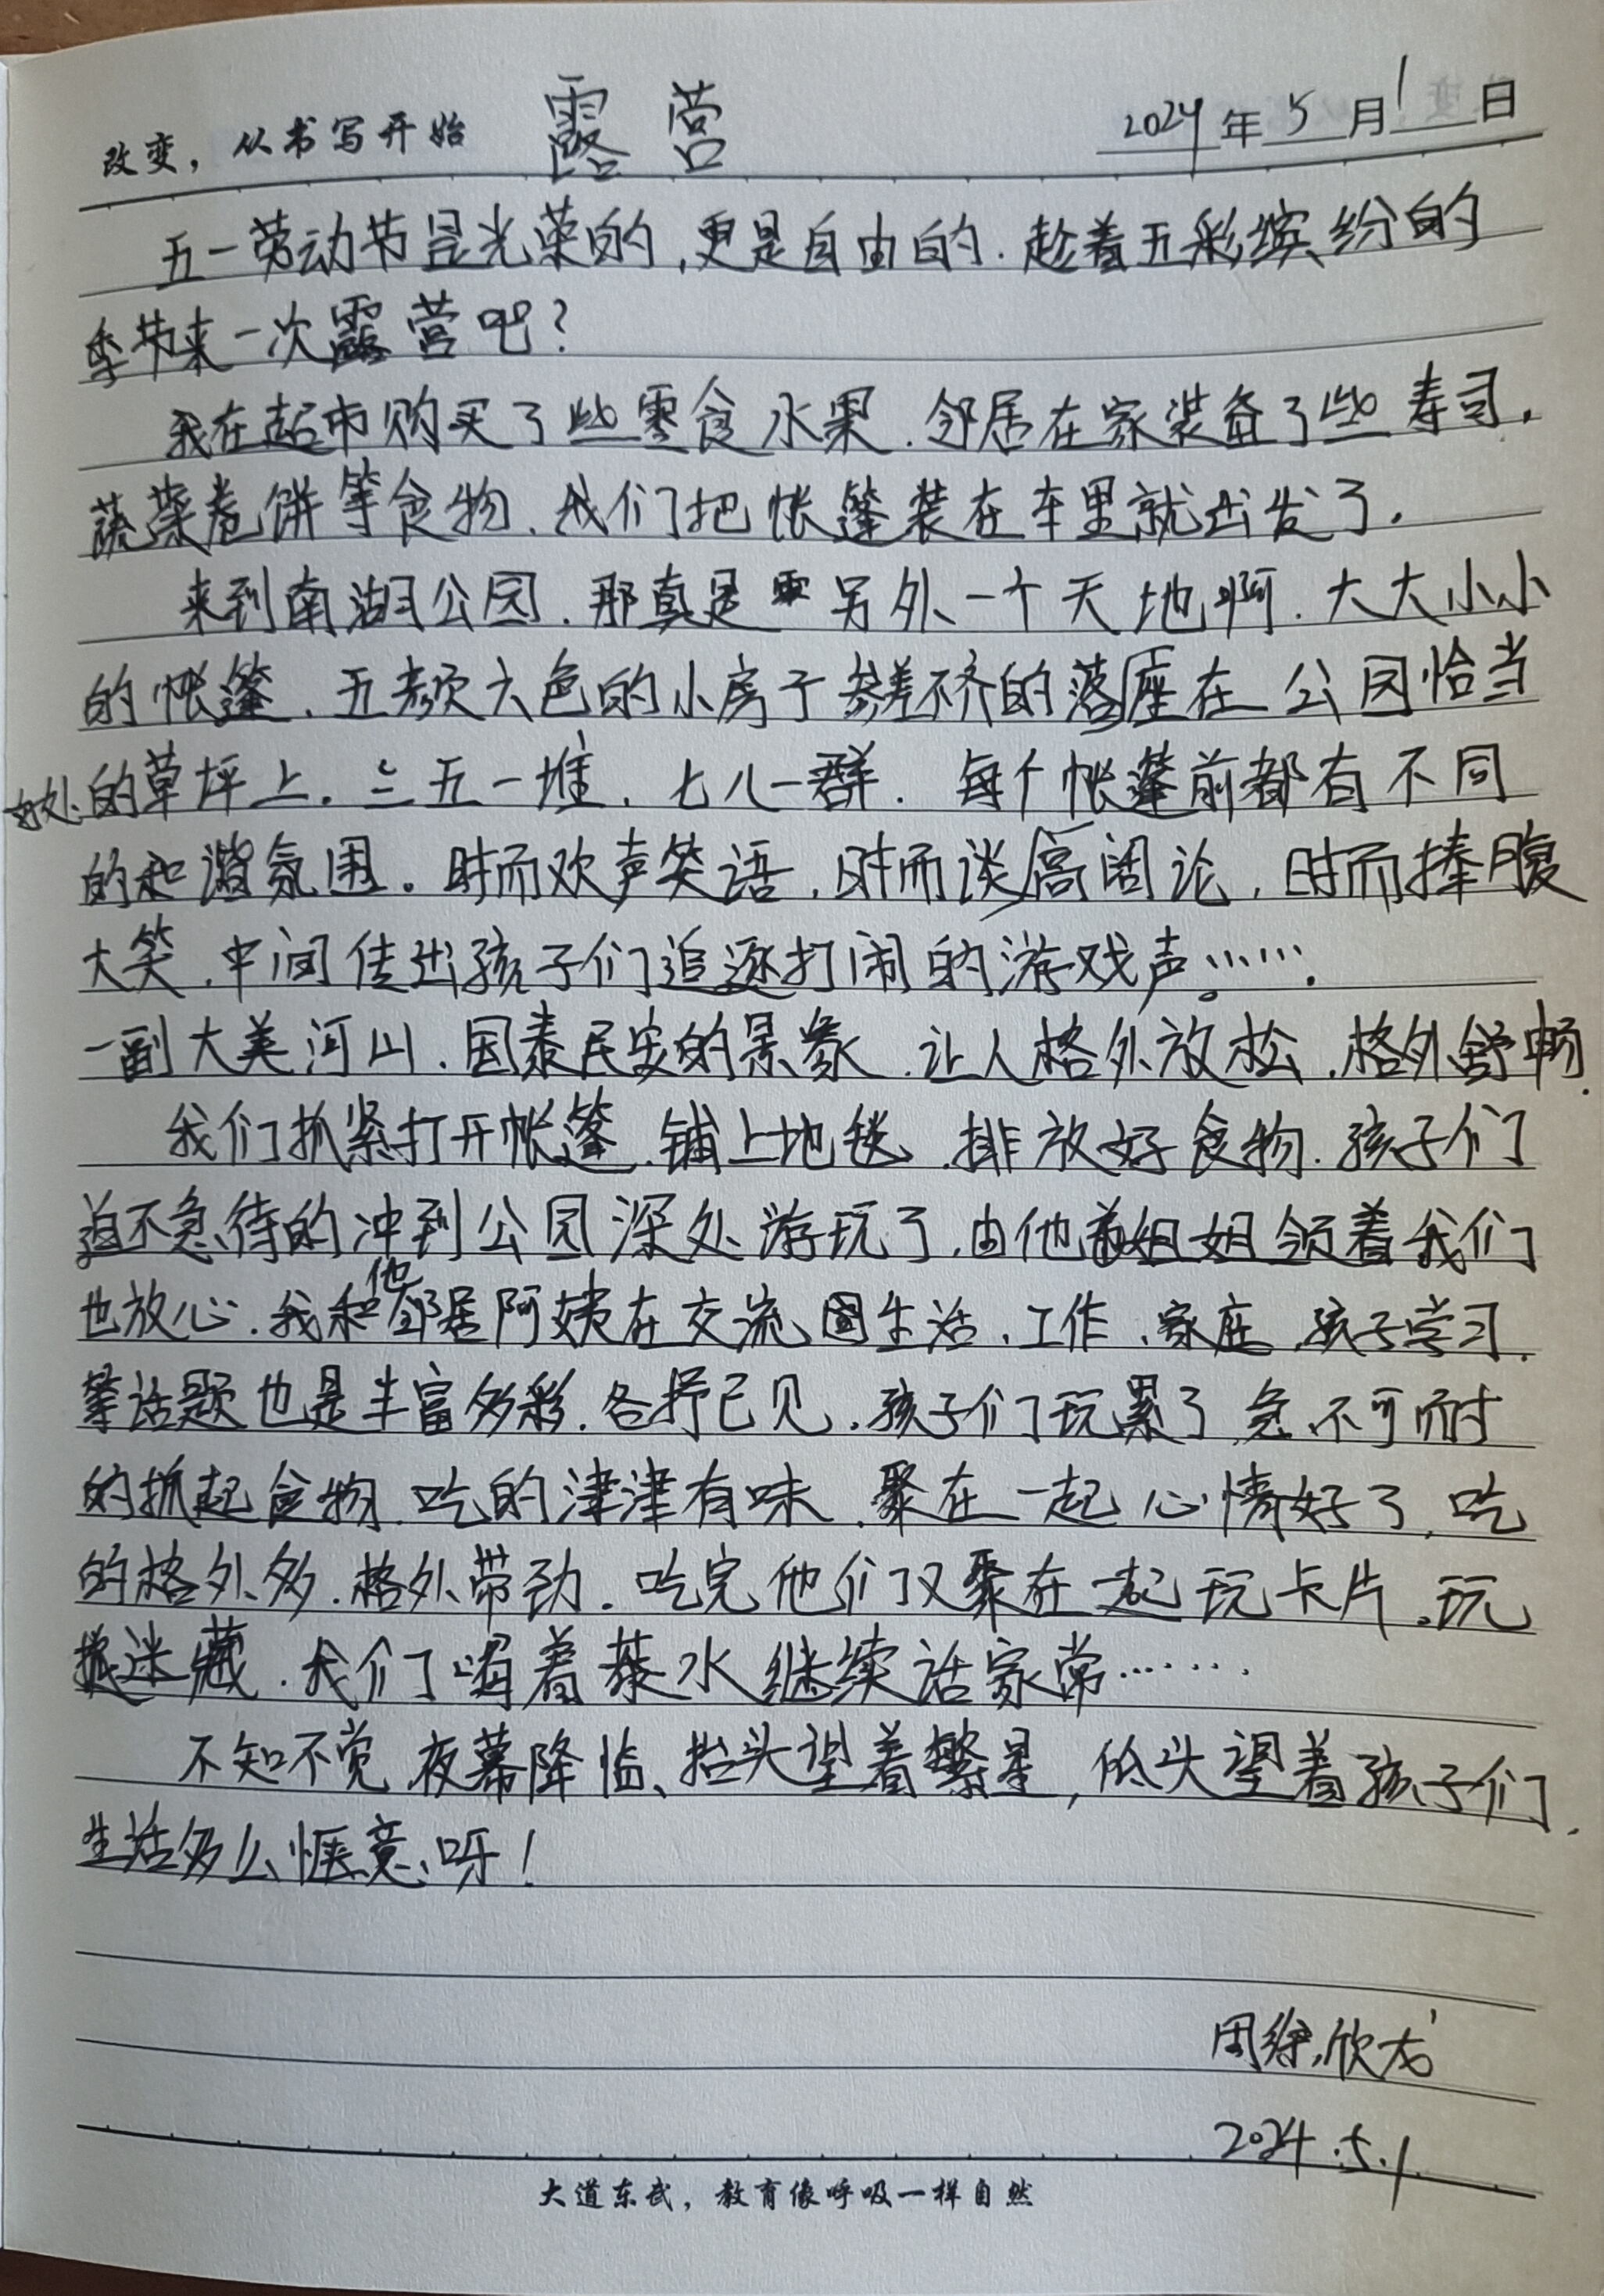 改变，从书写开始 露营 2024年5月1日
五一劳动节是光荣的,更是自由的.趁着五彩缤纷的
季节来一次露营吧?
我在超市购买了些零食水果.邻居在家装备了些寿司.
蔬菜卷饼等食物.我们把帐篷装在车里就出发了.
来到南湖公园.那真是另外一个天地啊.大大小小
的帐篷.五颜六色的小房子参差不齐的落座在公园恰当
好处的草坪上.三五一堆.七八一群.每个帐篷前都有不同
的和谐氛围.时而欢声笑语,时而谈高阔论,时而捧腹
大笑.中间传出孩子们追逐打闹的游戏声……
一副大美河山.国泰民安的景象.让人格外放松.格外舒畅.
我们抓紧打开帐篷.铺上地毯.排放好食物.孩子们
迫不急待的冲到公园深处游玩了.由他姐姐领着我们
也放心.我和他邻居阿姨在交流生活.工作.家庭.孩子学习.
等话题也是丰富多彩.各抒己见.孩子们玩累了急不可耐
的抓起食物.吃的津津有味.聚在一起心情好了,吃
的格外多.格外带劲.吃完他们又聚在一起玩卡片.玩
捉迷藏.我们喝着茶水继续话家常……
不知不觉夜幕降临、抬头望着繁星,低头望着孩子们.
生活多么惬意呀!
周绎.欣龙
2024.5.1
大道东武，教育像呼吸一样自然